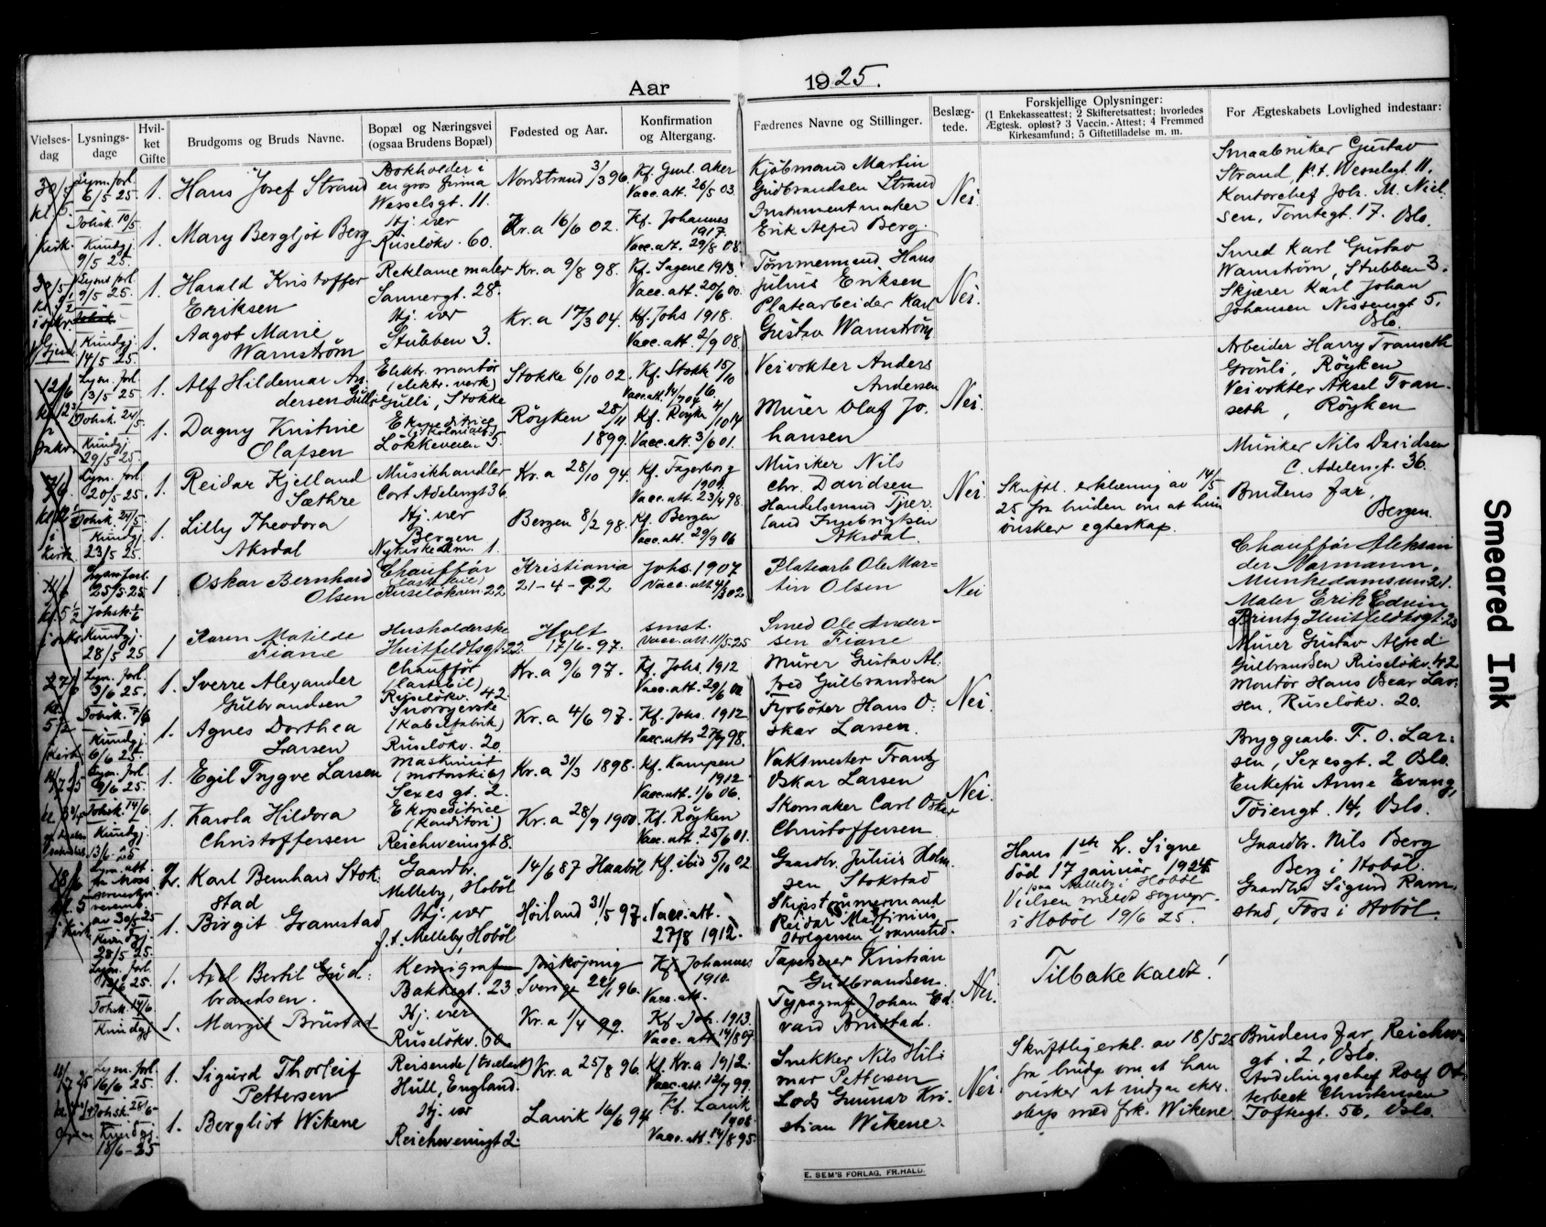 Aar 1925.
Vielses-dag
Lysnings-dage
Hvil-ket Gifte
Brudgoms og Bruds Navne.
Bopæl og Næringsvei (ogsaa Brudens Bopæl)
Fødested og Aar.
Konfirmation og Altergang.
Fædrenes Navne og Stillinger.
Beslæg-tede.
Forskjellige Oplysninger:
(1 Enkekasseattest; 2 Skifteretsattest; hvorledes
Ægtesk. opløst? 3 Vaccin.-Attest; 4 Fremmed
Kirkesamfund; 5 Giftetilladelse m. m.
For Ægteskabets Lovlighed indestaar:
Lysn. forl. 6/5 25.
1. Hans Josef Strand
Bokholder i en gros firma
Wesselsgt. 11.
Nordstrand 3/3 96.
Vacc. att. 26/5 03
Kjøbmand Martin
Gudbrandsen Strand
Nei.
Strand p.t. Wesselsgt. 11.
Kontorchef Joh. M. Niel-
sen, Tomtegt. 17. Oslo.
Kirk.
Kundgj. 9/5 25.
1. Mary Bergljot Berg
Hj. vær
Ruseløkv. 60.
Kr.a 16/6 02.
Kf. Johannes 1917.
Vacc. att. 29/8 08
Instrumentmaker
Erik Alfred Berg.
9/5 25.
1. Harald Kristoffer
Eriksen
Reklamemaler
Sannergt. 28.
Kr.a 9/8 98.
Kf. Sagene 1913.
Vacc. att. 20/6 00
Tømmermand Hans
Julius Eriksen
Nei.
Smed Karl Gustav
Warnstrøm, Stubben 3.
Skjærer Karl Johan
Johansen Nissensgt 5,
Oslo.
Kundgj. 14/5 25
1. Aagot Marie
Warnstrøm
Hj. vær
Stubben 3.
Kr.a 17/3 04.
Kf. Johs 1918.
Vacc. att. 2/9 08
Platearbeider Karl
Gustav Warnstrøm
12/6
Lysn. forl. 13/5 25
1. Alf Hildemar An-
dersen Gulli
Elektr. montør
(elektr. verk)
Gulli, Stokke
Stokke 6/10 02.
Kf. Stokk 15/10 16.
Veivokter Anders
Andersen
Nei.
Arbeider Harry Transeth
Grönli, Røyken
Veivokter Aksel Tran-
seth, Røyken
Kundgj. 29/5 25.
1. Dagny Kristine
Olafsen
Løkkeveien 5
Røyken 25/11 1899.
Kf. Røyken 4/10 14
Vacc. att. 3/6 01.
Murer Olaf Jo-
hansen
Lysn. forl. 20/5 25.
1. Reidar Kjelland
Sæthre
Musikhandler
Cort Adelersgt 36
Kr.a 28/10 94.
Kf. Fagerborg 1909.
Vacc. att. 23/4 98.
Musiker Nils
Chr. Davidsen
Nei.
Skriftl. erklæring av 14/5
25 fra bruden om at hun
ønsker egteskap.
Musiker Nils Davidsen
C. Adelersgt. 36.
Brudens far,
Bergen.
Kundgj. 23/5 25.
1. Lilly Theodora
Aksdal
Hj. vær
Bergen
Nykirkealm. 1.
Bergen 8/2 98.
Kf. Bergen
Vacc. att. 29/9 06
Handelsmand Tjer-
land Ingebrigtsen
Aksdal
Lysn. forl. 25/5-25
1 Oskar Bernhard
Olsen
Chauffør
(lastebil)
Ruseløkvn 22
Kristiania
21-4-92
Johs. 1907
Platearb Ole Mar-
tin Olsen
Nei
Chauffør Aleksan-
der Normann,
Munkedamsvn 21.
Maler Erik Edvin
Huitfeldtsgt. 23
Kundgj. 28/5 25
1 Karen Matilde
Fiane
Husholderske
Huitfeldtsgt 22
Holt
17/6-97.
Vacc. att. 11/5-25
Smed Ole Ander-
sen Fiane
Lysn. forl. 3/6 25.
1. Sverre Alexander
Gulbrandsen
Chauffør
(lastebil)
Ruseløkv. 42.
Kr.a 9/6 97.
Kf. Johs. 1912
Murer Gustav Al-
fred Gulbrandsen
Nei.
Murer Gustav Alfred
Gulbrandsen Ruseløkv. 42
Montør Hans Oscar Lar-
sen, Ruseløkv. 20.
Kundgj. 6/6 25.
1. Agnes Dorthea
Larsen
(Kabelfabrik)
Ruseløkv. 20
Kr.a 4/6 97.
Kf. Johs. 1912.
Fyrbøter Hans O-
skar Larsen.
Lysn. forl. 9/6 25.
1. Egil Trygve Larsen
Maskinist
(motorskib)
Sexes gt. 2.
Kr.a 31/3 1898.
Kf. Kampen 1912
Vacc. att. 1/6 06.
Vaktmester Frantz
Oskar Larsen
Nei.
Bryggearb. F. O. Lar-
sen, Sexesgt. 2 Oslo
Enkefru Anne Evang,
Tøiengt. 14, Oslo.
Kundgj. 13/6 25
1. Karola Hildora
Christoffersen
Ekspeditrice
(Konditori)
Reichweinsgt 8.
Kr.a 28/9 1900.
Kf. Røyken
Vacc. att. 25/6 01.
Skomaker Carl Oskar
Christoffersen.
2. Karl Bernhard Stok-
stad
Gaardbr.
Melleby, Hobøl
14/6 87 Haabøl
Kf. ibid 5/10 02
Gaardbr. Julius Holm-
sen Stokstad
Hans 1ste h. Signe
død 17 januar 1924
paa Melleby i Hobøl
Vielsen meldt sogepr.
i Hobøl 19/6 25.
Gaardbr. Nils Berg
Berg i Hobøl.
Gaardbr. Sigurd Ram-
stad, Foss i Hobøl
28/5 25.
1. Birgit Gramstad
Hj. vær
f.t. Melleby, Hobøl
Høiland 31/5 97.
Vacc. att.
27/8 1912.
Skipstømmermand
Reidar Martinius
Holgersen Gramstad.
Lysn. forl.
1. Axel Bertil Gud-
brandsen.
Kemigraf
Bakkegt. 23
Jønkøping
Sverige
Kf. Johannes 1910.
Vacc. att.
Tapetserer Kristian
Gulbrandsen.
Nei.
Tilbakekaldt!
Kundgj.
1. Margit Brustad
Hj. vær
Ruseløkv. 60
Kr.a 1/4 99.
Kf. Joh. 1913.
Vacc. att. 14/8 07
Typograf Johan Ed-
vard Brustad.
Lysn. forl. 16/6 25.
1. Sigurd Thorleif
Pettersen
Hull, England.
Kr.a 25/8 96.
Kf. Kr.a 1912.
Snekker Nils Hil-
mar Pettersen
Nei.
Skriftlig erkl. av 18/5 25
fra brudg. om at han
ønsker at indgaa ekte-
skap med frk. Wikene
Brudens far, Reichw.
gt. 2, Oslo.
Avdelingschef Rolf Ot-
terbeck Christensen
Toftesgt. 56, Oslo.
Kundgj. 18/6-25
1. Bergliot Wikene
Hj. vær
Reichweinsgt 2.
Larvik 16/6 94
Kf. Larvik 1908
Vacc. att. 14/8 95
Lods Gunnar Kri-
stian Wikene.
E. SEM'S FORLAG, FR.HALD.
Smeared Ink